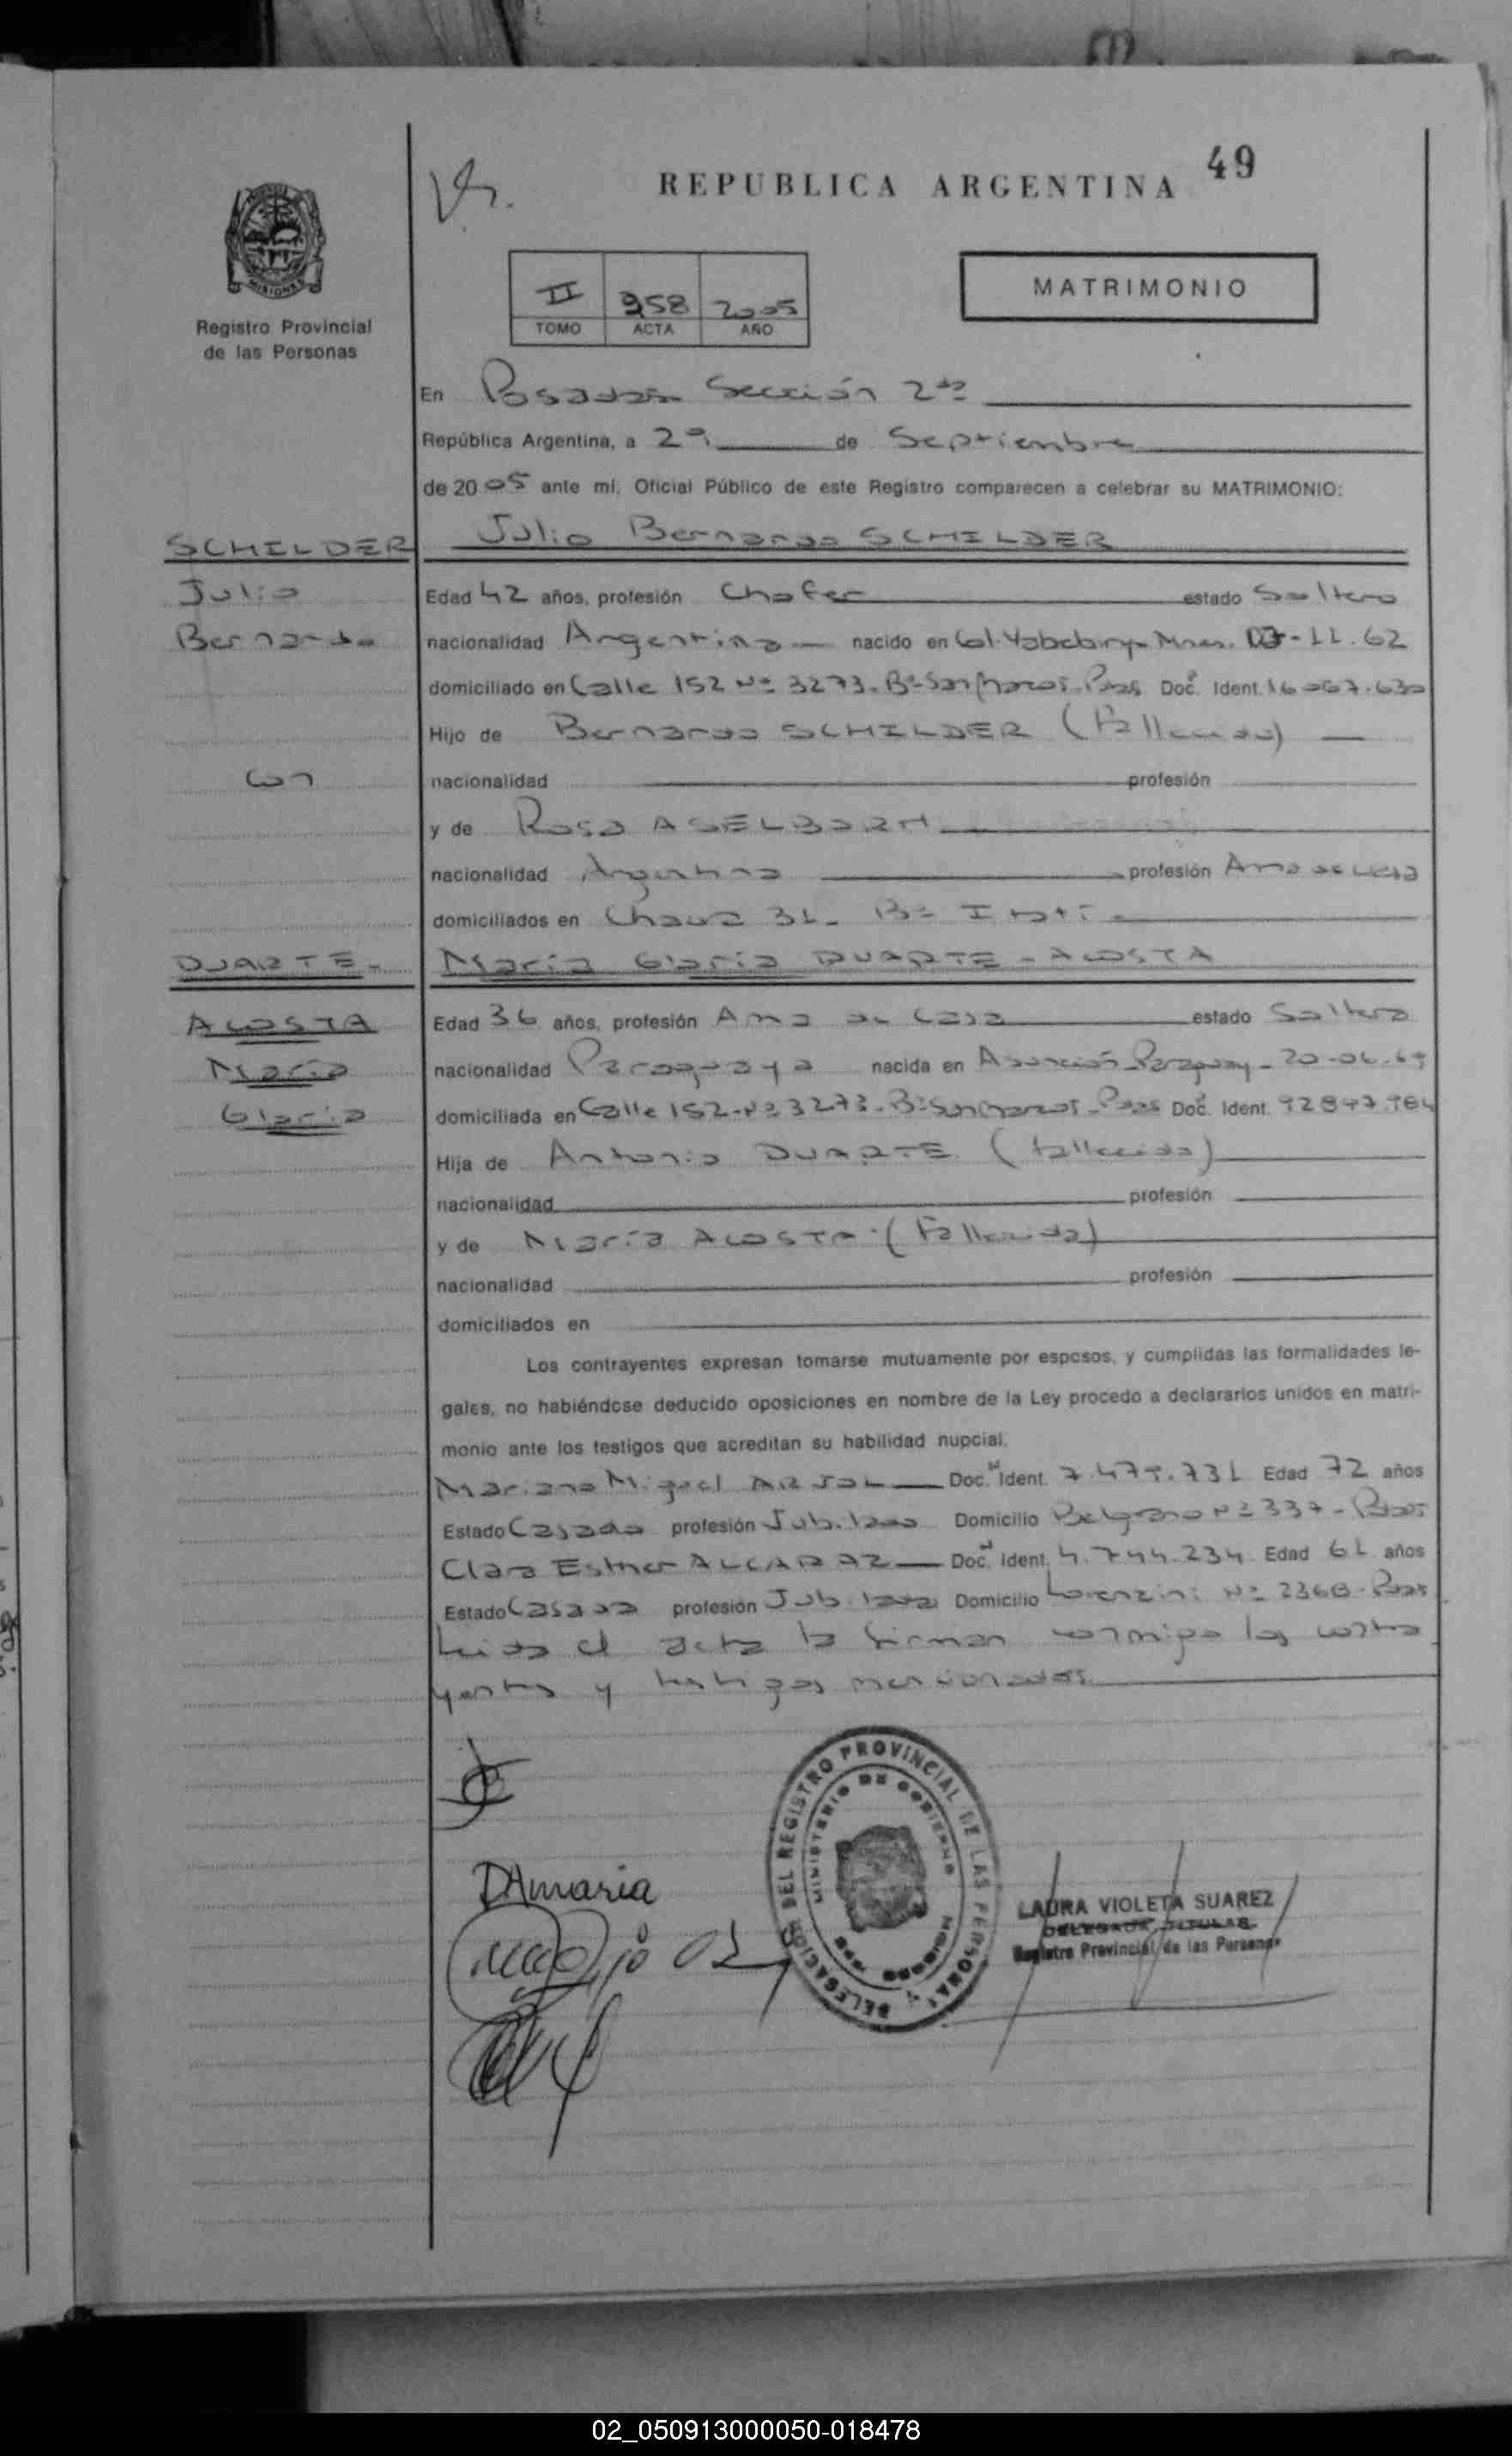 49
REPUBLICA ARGENTINA
MISIONES
Registro Provincial
de las Personas
II 258 2005
TOMO ACTA AÑO
MATRIMONIO
En Posadas Sección 2da
República Argentina, a 29 de Septiembre
de 2005 ante mí, Oficial Público de este Registro comparecen a celebrar su MATRIMONIO:
SCHILDER Julio Bernardo SCHILDER
Julio Edad 42 años, profesión Chofer estado Soltero
Bernardo nacionalidad Argentina nacido en Col. Yabebiry Mnes. 03-11.62
domiciliado en Calle 152 Nº 3273-Bº San Marcos-Pdas Doc. Ident. 16.067.630
Hijo de Bernardo SCHILDER (Fallecido)
con nacionalidad profesión
y de Rosa ASELBORN
nacionalidad Argentina profesión Ama de Casa
domiciliados en Bº
DUARTE- María Gloria DUARTE-ACOSTA
ACOSTA Edad 36 años, profesión Ama de Casa estado Soltera
María nacionalidad Paraguaya nacida en Asunción Paraguay-20-06-69
Gloria domiciliada en Calle 152-Nº 3273-Bº San Marcos-Pdas Doc. Ident. 92.847.984
Hija de Antonio DUARTE (fallecido)
nacionalidad profesión
y de María ACOSTA (Fallecida)
nacionalidad profesión
domiciliados en
Los contrayentes expresan tomarse mutuamente por esposos, y cumplidas las formalidades le-
gales, no habiéndose deducido oposiciones en nombre de la Ley procedo a declararlos unidos en matri-
monio ante los testigos que acreditan su habilidad nupcial.
Mariano Miguel Doc. Ident. 7.479.731 Edad 72 años
Estado Casado profesión Jubilado Domicilio Belgrano Nº 337-Pdas
Clara Esther ALCARAZ Doc. Ident. 4.744.234 Edad 61 años
Estado Casada profesión Jubilada Domicilio Lorenzini Nº 2368-Pdas
Leida el acta la firman conmigo los contra
yentes y testigos mencionados
DAmaria
DELEGACION DEL REGISTRO PROVINCIAL DE LAS PERSONAS
MINISTERIO DE GOBIERNO
MISIONES
LAURA VIOLETA SUAREZ
DELEGADA TITULAR
Registro Provincial de las Personas
02_050913000050-018478